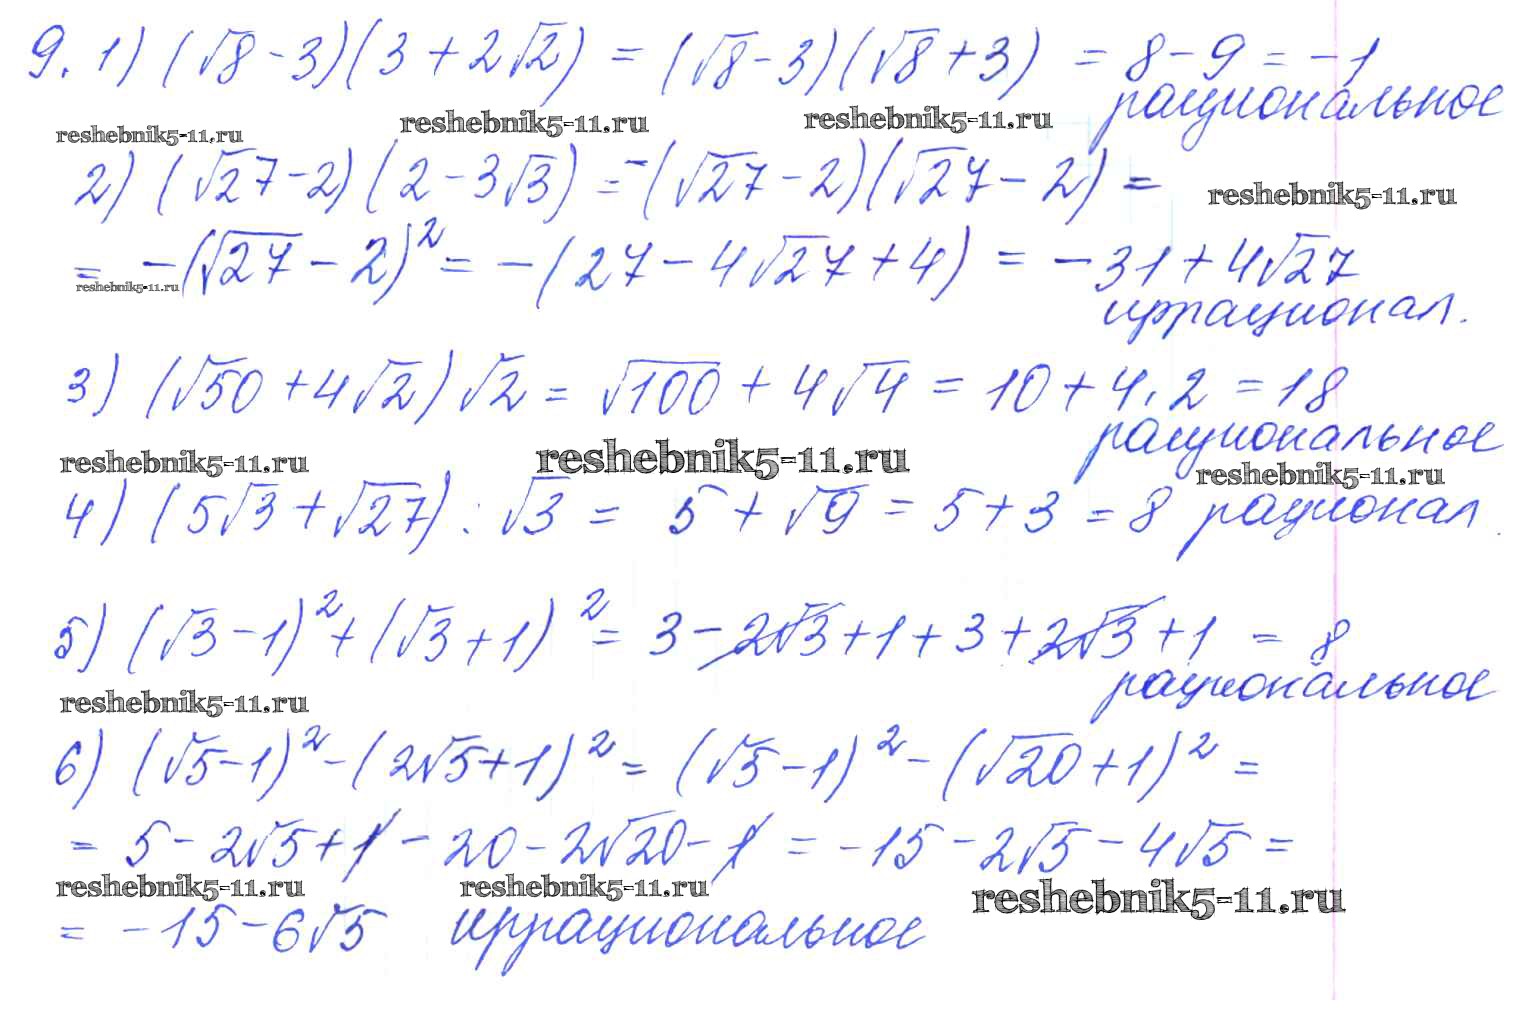 9. 1) (√8 - 3)(3 + 2√2) = (√8 - 3)(√8 + 3) = 8 - 9 = -1
рациональное
reshebnik5-11.ru reshebnik5-11.ru reshebnik5-11.ru
2) (√27 - 2)(2 - 3√3) = -(√27 - 2)(√27 - 2) =
reshebnik5-11.ru
= -(√27 - 2)² = -(27 - 4√27 + 4) = -31 + 4√27
reshebnik5-11.ru
иррационал.
3) (√50 + 4√2)√2 = √100 + 4√4 = 10 + 4·2 = 18
рациональное
reshebnik5-11.ru reshebnik5-11.ru reshebnik5-11.ru
4) (5√3 + √27) : √3 = 5 + √9 = 5 + 3 = 8 рационал.
5) (√3 - 1)² + (√3 + 1)² = 3 - 2√3 + 1 + 3 + 2√3 + 1 = 8
рациональное
reshebnik5-11.ru
6) (√5 - 1)² - (2√5 + 1)² = (√5 - 1)² - (√20 + 1)² =
= 5 - 2√5 + 1 - 20 - 2√20 - 1 = -15 - 2√5 - 4√5 =
reshebnik5-11.ru reshebnik5-11.ru reshebnik5-11.ru
= -15 - 6√5 иррациональное